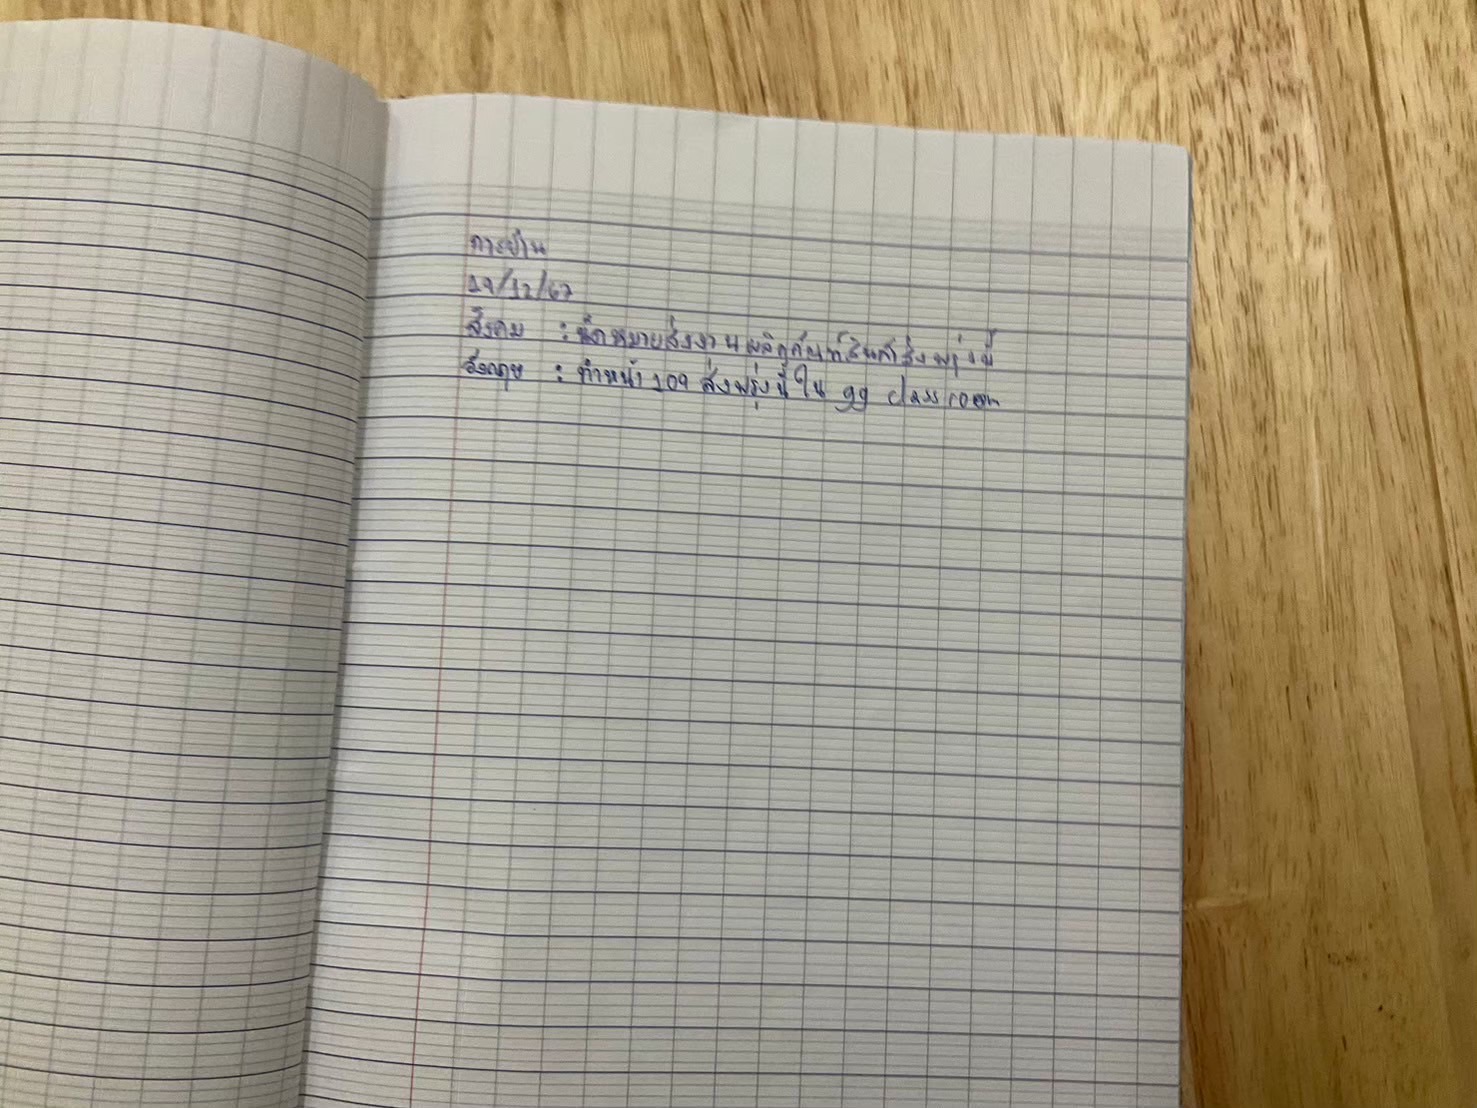 การบ้าน
19/12/67
สังคม : นัดหมายส่งงานผลิตภัณฑ์สินค้าส่งพรุ่งนี้
อังกฤษ : ทำหน้า 109 ส่งพรุ่งนี้ใน gg classroom